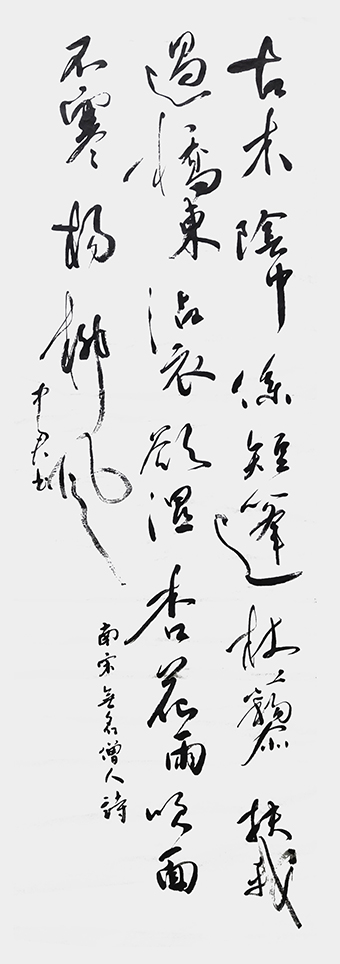 古木陰中係短篷杖藜扶我
過橋東沾衣欲濕杏花雨吹面
不寒楊柳風
南宋無名僧人詩